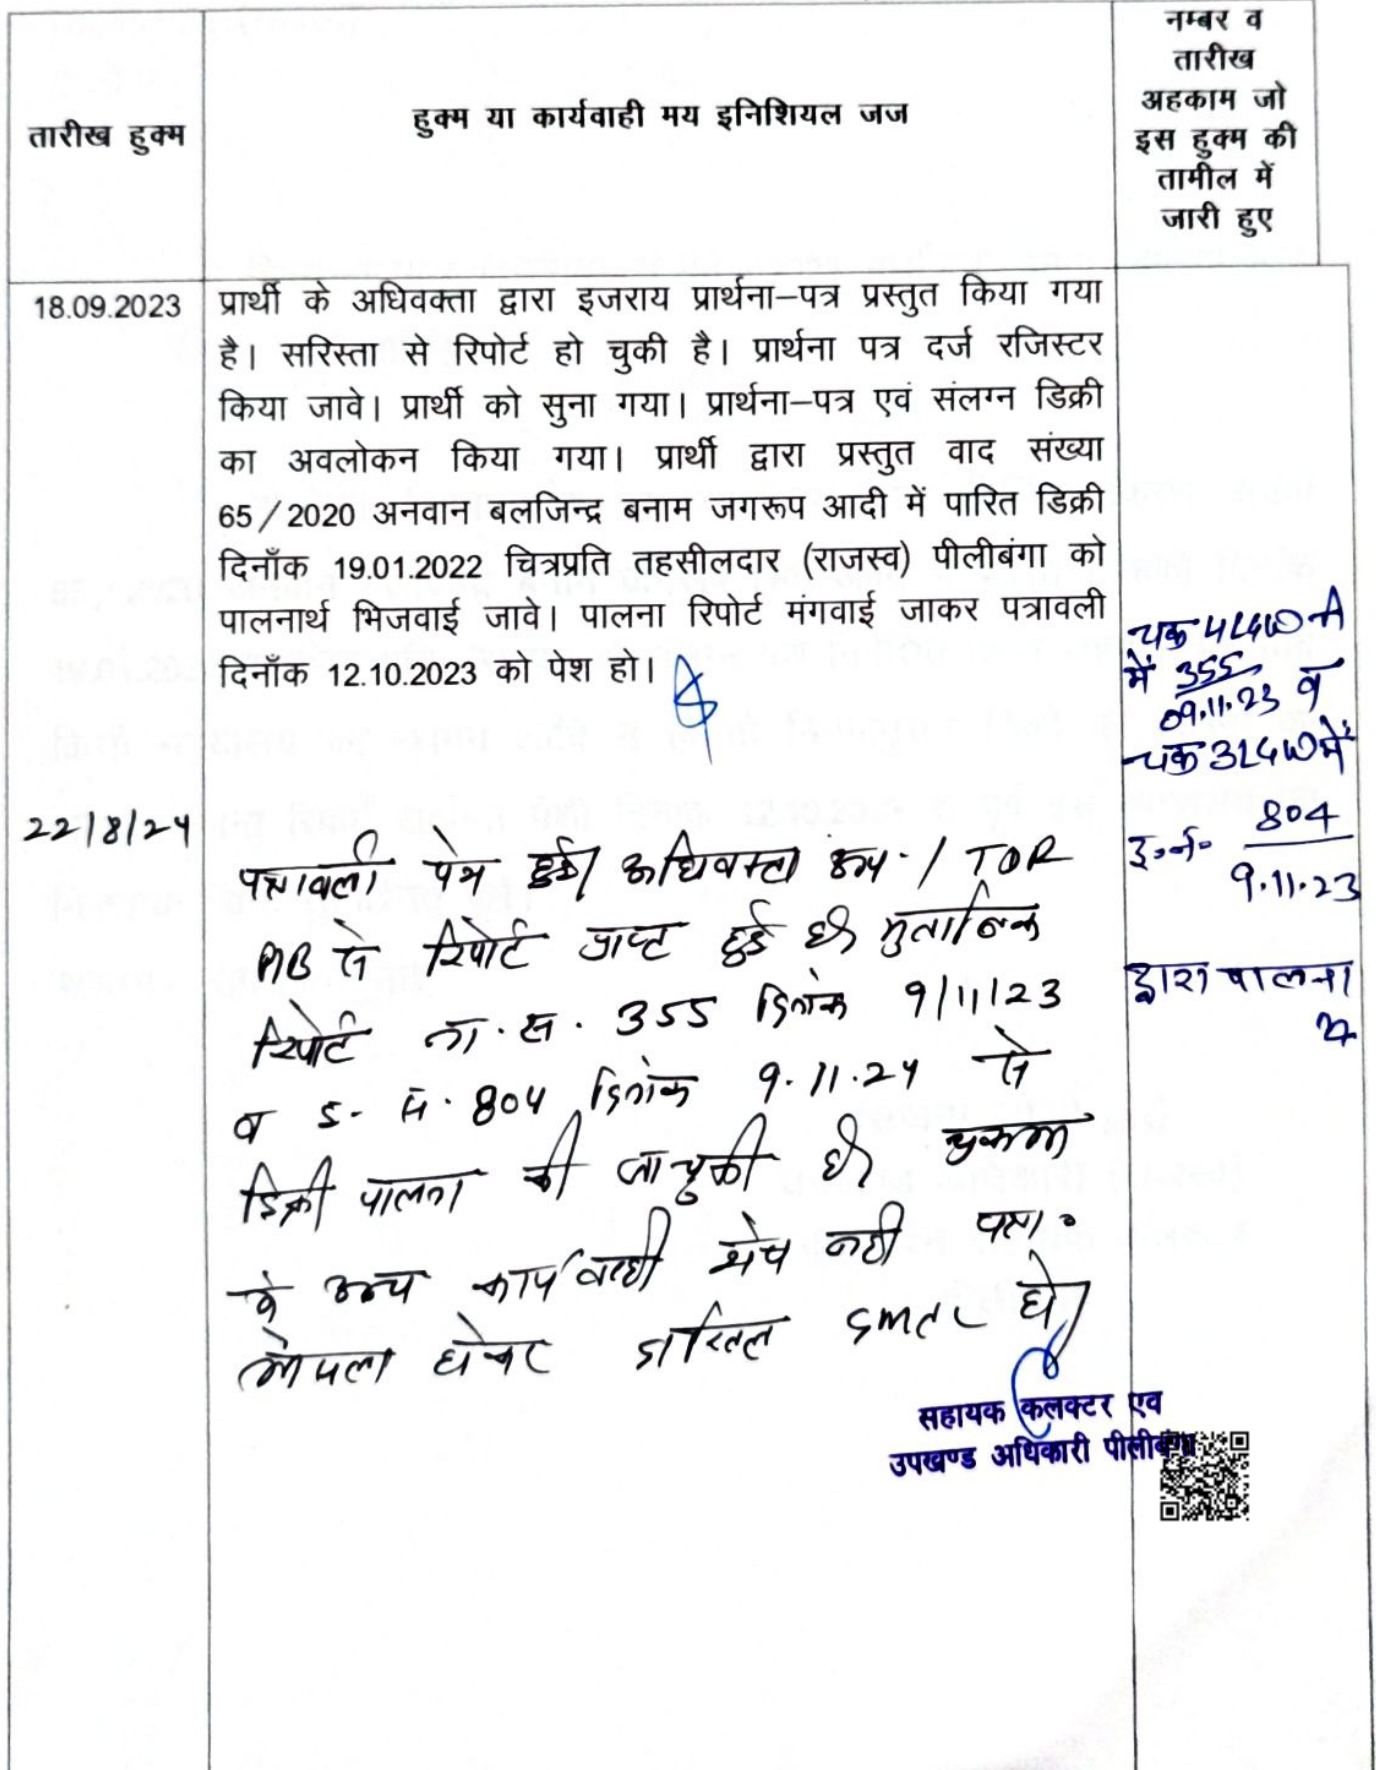 तारीख हुक्म
हुक्म या कार्यवाही मय इनिशियल जज
नम्बर व
तारीख
अहकाम जो
इस हुक्म की
तामील में
जारी हुए
18.09.2023
प्रार्थी के अधिवक्ता द्वारा इजराय प्रार्थना–पत्र प्रस्तुत किया गया
है। सरिस्ता से रिपोर्ट हो चुकी है। प्रार्थना पत्र दर्ज रजिस्टर
किया जावे। प्रार्थी को सुना गया। प्रार्थना–पत्र एवं संलग्न डिक्री
का अवलोकन किया गया। प्रार्थी द्वारा प्रस्तुत वाद संख्या
65/2020 अनवान बलजिन्द्र बनाम जगरूप आदी में पारित डिक्री
दिनाँक 19.01.2022 चित्रप्रति तहसीलदार (राजस्व) पीलीबंगा को
पालनार्थ भिजवाई जावे। पालना रिपोर्ट मंगवाई जाकर पत्रावली
दिनाँक 12.10.2023 को पेश हो।
चक 4LGW A
में 355
09.11.23 व
चक 3LGW में
इ.न. 804
9.11.23
द्वारा पालना
22/8/24
पत्रावली पेश हुई। अधिवक्ता उप. / TOR
PIB से रिपोर्ट प्राप्त हुई है। मुताबिक
रिपोर्ट ना. स. 355 दिनांक 9/11/23
व इ. न. 804 दिनांक 9.11.24 से
डिक्री पालना की जा चुकी है।
अन्य कार्यवाही शेष नही पत्रा.
होकर दाखिल दफ्तर हो।
सहायक कलक्टर एव
उपखण्ड अधिकारी पीलीबंगा